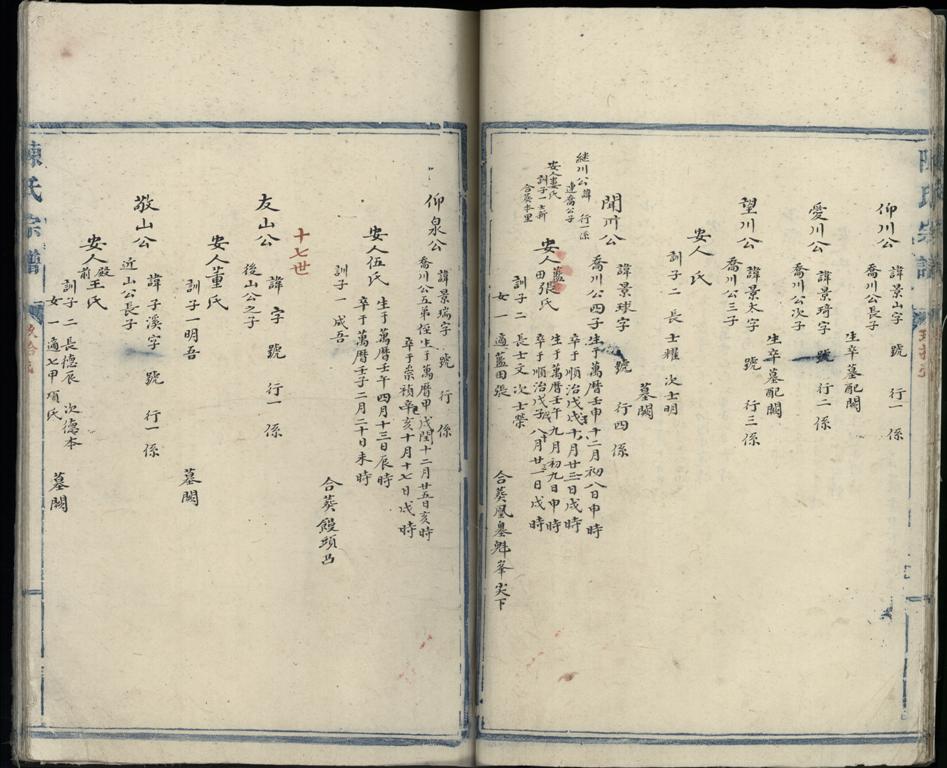 陳氏宗譜
仰川公
諱景山字 號 行一 係
喬川公長子
生卒墓配闕
愛川公
諱景琦字 號 行二係
喬川公次子
生卒墓配闕
望川公
諱景太字 號 行三係
喬川公三子
墓闕
安人 氏
訓子二 長士耀 次士明
聞川公
諱景球字 號 行四係
喬川公四子
生于萬曆壬申十二月初八日申時
卒于順治戊戌十月廿三日戌時
継川公諱 行一係
連喬公子
安人婁氏
訓子一士新
合葵本里
安人藍田張氏
生于萬曆壬午九月初九日申時
卒于順治戊子八月廿一日戌時
訓子二 長士文 次士榮
女一 適藍田張
合葵鳳墓魁峯尖下
仰泉公
諱景瑞字 號 行 係
喬川公五弟侄
生于萬曆甲戌閏十二月廿五日亥時
卒于崇禎辛亥十月十七日戌時
安人伍氏
生于萬曆壬午四月十三日辰時
卒于萬曆壬子二月二十日未時
訓子一 成吾
合葵饅頭凸
十七世
友山公
諱 字 號 行一係
後山公之子
安人董氏
訓子一明吾
墓闕
敬山公
諱子溪字 號 行一係
近山公長子
安人殿前王氏
訓子二 長德辰 次德本
女一 適七甲項氏
墓闕
陳氏宗譜